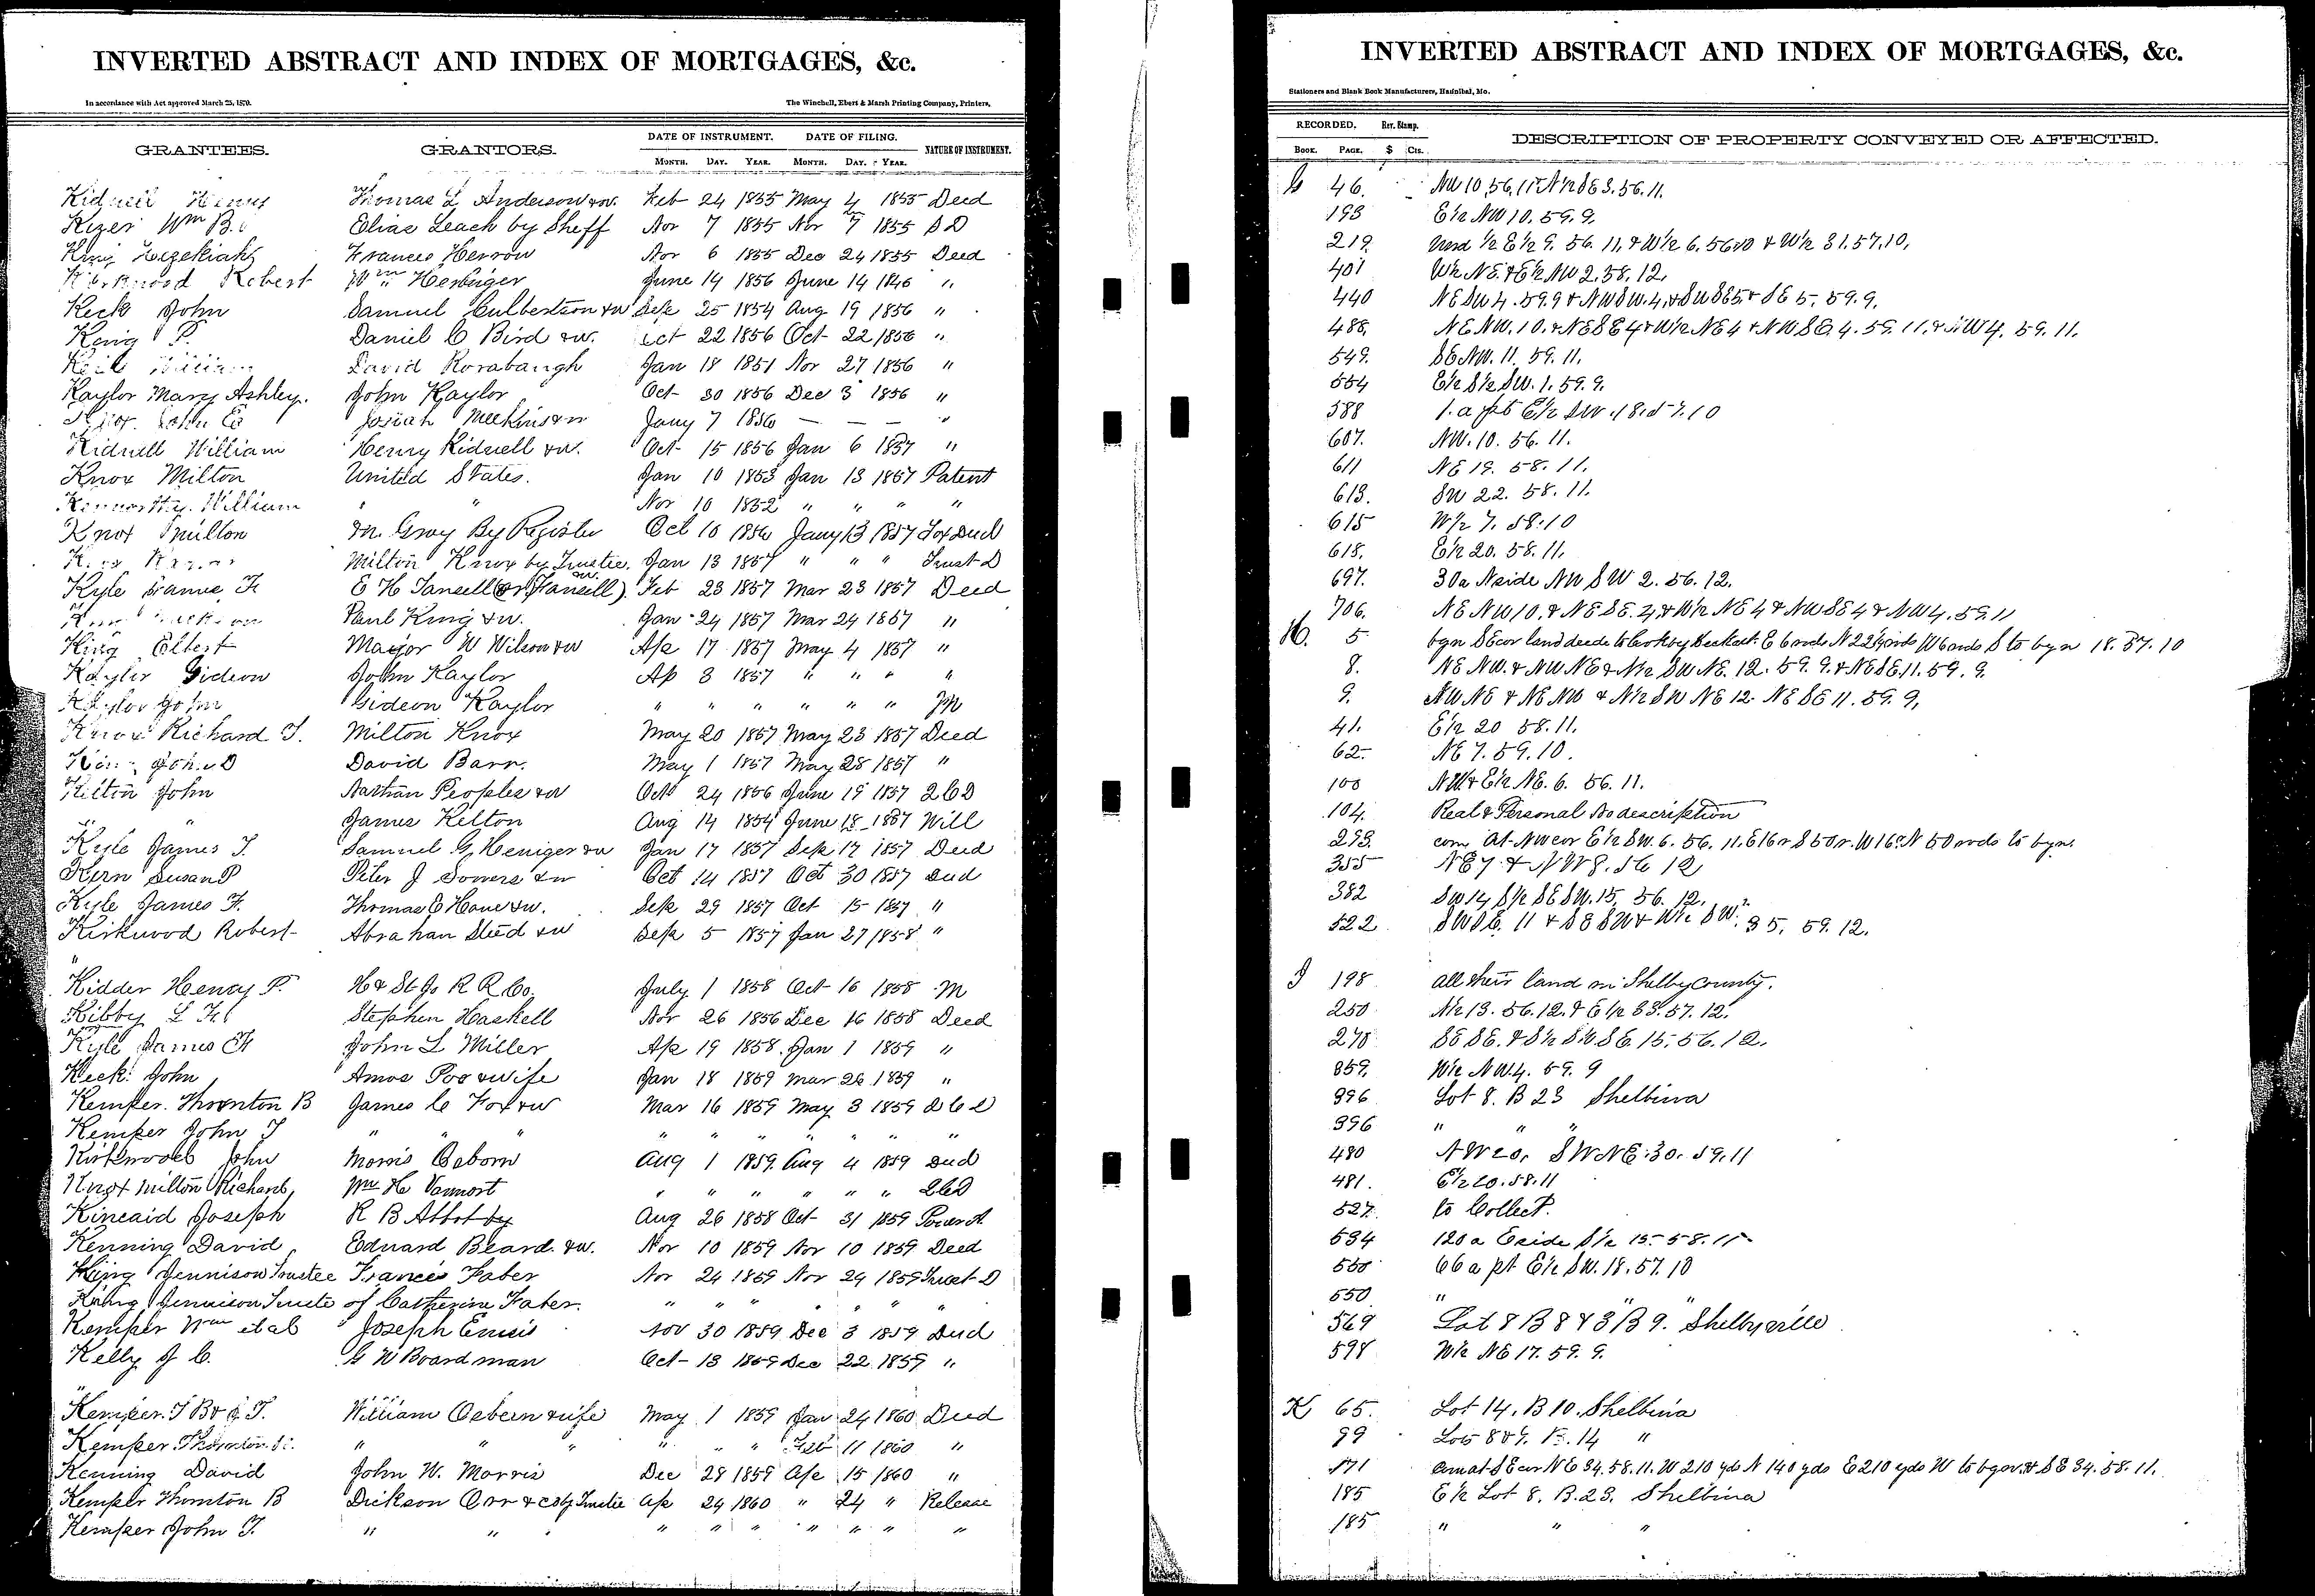 INVERTED ABSTRACT AND INDEX OF MORTGAGES, &c.
In accordance with Act approved March 25, 1870. The Winchell, Ebert & Marsh Printing Company, Printers,
DATE OF INSTRUMENT. DATE OF FILING.
GRANTEES. GRANTORS. NATURE OF INSTRUMENT.
MONTH. DAY. YEAR. MONTH. DAY. YEAR.
Kidwell Henry Thomas L Anderson &w. Feb 24 1855 May 4 1855 Deed
Kizer Wm B. Elias Leach by Sheff Nov 7 1855 Nov 7 1855 S D
King Hezekiah Frances Herron Nov 6 1855 Dec 24 1855 Deed
Kirkwood Robert Wm Herbiger June 14 1856 June 14 1846 "
Keck John Samuel Culbertson &w Sep 25 1854 Aug 19 1856 "
King P. Daniel C Bird &w. Oct 22 1856 Oct 22 1856 "
William David Rorabaugh Jan 18 1851 Nov 27 1856 "
Kaylor Mary Ashley. John Kaylor Oct 30 1856 Dec 3 1856 "
John Josiah Meekinson Jany 7 1856 — — — "
Kidwell William Henry Kidwell &w. Oct 15 1856 Jan 6 1857 "
Knox Milton United States. Jan 10 1853 Jan 13 1857 Patent
Kenworthy William " " Nov 10 1852 " " " "
Knox Milton Gray By Register Oct 10 1856 Jany 13 1857 Tax Deed
Milton Knox by Trustee. Jan 13 1857 " " Trust D
Kyle James H E H Tansill (or Fansill) &w. Feb 23 1857 Mar 23 1857 Deed
Paul King &w. Jan 24 1857 Mar 24 1857 "
King Elbert Major W Wilson &w Ap 17 1857 May 4 1857 "
Kaylor Gideon John Kaylor Ap 3 1857 " " " "
Kaylor John Gideon Kaylor " " " " " " M
Knox Richard T. Milton Knox May 20 1857 May 23 1857 Deed
John D David Barr. May 1 1857 May 28 1857 "
Kelton John Nathan Peoples &w Oct 24 1856 June 19 1857 2 C D
" " James Kelton Aug 14 1854 June 18 1857 Will
Kyle James T. Samuel G. Heniger &w Jan 17 1857 Sep 17 1857 Deed
Kern Susan P Peter J Sowers &w Oct 14 1857 Oct 30 1857 Deed
Kyle James H. Thomas C Hone &w. Sep 29 1857 Oct 15 1857 "
Kirkwood Robert Abrahan Steed &w Sep 5 1857 Jan 27 1858 "
"
Kidder Henry P. H & St Jo R R Co. July 1 1858 Oct 16 1858 M
Kibby L H Stephen Haskell Nov 26 1856 Dec 16 1858 Deed
Kyle James H John L Miller Ap 19 1858 Jan 1 1859 "
Keck John Amos Poo &wife Jan 18 1859 Mar 26 1859 "
Kemper. Thornton B James C Fox &w Mar 16 1859 May 3 1859 2 C D
Kemper John T " " " " " " " " " "
Kirkwood John Morris Osborn Aug 1 1859 Aug 4 1859 Deed
Knox Milton & Richard, Wm H Vannort " " " " " " 2 C D
Kincaid Joseph R B Abbot by Aug 26 1858 Oct 31 1859 Power A.
Kenning David Edward Beard. &w. Nov 10 1859 Nov 10 1859 Deed
King Jennison Trustee Francis Faber Nov 24 1859 Nov 29 1859 Trust D
King Jennison Trustee of Catherine Faber. " " " " " " "
Kemper Wm et al Joseph Ennis Nov 30 1859 Dec 3 1859 Deed
Kelly J C. G W Boardman Oct 13 1859 Dec 22 1859 "
"
Kemper. T B & J. T. William Osbern &wife May 1 1859 Jan 24 1860 Deed
Kemper Thornton " " " " " " Feb 11 1860 "
Kenning David John W. Morris Dec 28 1859 Ap 15 1860 "
Kemper Thornton B Dickson Orr & co by Trustee Ap 24 1860 " 24 " Release
Kemper John T. " " " " " " " " "
INVERTED ABSTRACT AND INDEX OF MORTGAGES, &c.
Stationers and Blank Book Manufacturers, Hannibal, Mo.
RECORDED. Rev. Stamp. DESCRIPTION OF PROPERTY CONVEYED OR AFFECTED.
BOOK. PAGE. $ Cts.
G 46. NW 10.56.11 & N½ SE 3.56.11.
193 E½ NW 10.59.9.
219. Und ½ E½ 9. 56. 11, & W½ 6. 56.10 & W½ 31.57.10,
401 W½ NE. & E½ NW 2.58.12,
440 NE SW 4. 59.9 & NW SW. 4, & SW SE 5 & SE 5. 59.9.
488. NE NW. 10. & NE SE 4 & W½ NE 4 & NW SE. 4. 59. 11. & NW 4. 59. 11.
549. SE NW. 11. 59. 11.
554 E½ S½ SW. 1. 59. 9.
588 1. a pt E½ SW. 18.57.10
607. NW. 10. 56. 11.
611 NE 19. 58. 11.
613. SW 22. 58. 11.
615 W½ 7. 58.10
618. E½ 20. 58. 11.
697. 30a N side NW SW 2. 56. 12.
706. NE NW 10. & NE SE. 4. & W½ NE 4 & NW SE 4 & NW 4. 59.11
H. 5 bgn SE cor land deede to by E 6 rods N 22½ rods W 6 rods S to bgn 18. 57. 10
8. NE NW. & NW NE & N½ SW NE. 12. 59. 9. & NE SE. 11. 59. 9.
9. NW NE & NE NW & N½ SW NE 12. NE SE 11. 59. 9,
41. E½ 20 58. 11.
62. NE 7. 59. 10.
100 NW & E½ NE. 6. 56. 11.
104. Real & Personal No description
293. com at NW cor E½ SW. 6. 56. 11. E 16 r S 50 r. W 16 r N 50 rods to bgn.
355 NE 7 & NW 8. 56 12
382 SW 14 S½ SE SW. 15. 56. 12.
522 SW SE. 11 & SE SW & W½ SW. 35. 59. 12.
I 198 all their land in Shelby County.
250 N½ 13. 56. 12. & E½ 33. 57. 12.
270 SE SE. & S½ SW SE. 15. 56. 12.
359. W½ NW 4. 59. 9
396 Lot 8. B 23 Shelbina
396 " " "
480 NW 20, SW NE. 30. 59.11
481. E½ 20. 58. 11
527. to Collect.
534 120 a E side S½ 15. 58. 11
550 66 a pt E½ SW. 18. 57. 10
550 " " "
569 Lot 8 B 8 & 3 B 9. Shelbyville
598 W½ NE 17. 59. 9.
K 65. Lot 14. B 10. Shelbina
99 Lots 8 & 9. B. 14 "
171 Com at SE cor NE 34. 58. 11. W 210 yds N 140 yds E 210 yds W to bgn. & SE 34. 58. 11.
185 E½ Lot 8. B. 23. Shelbina
185 " " "